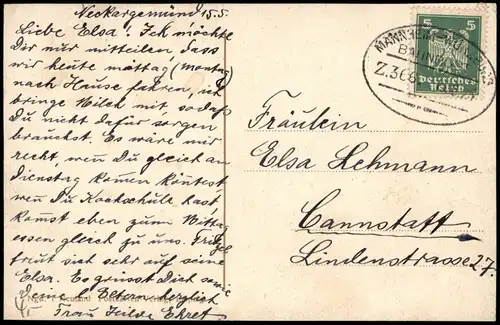 Neckargemünd 15.5.
Liebe Elsa! Ich möchte
Dir nur mitteilen dass
wir heute mittag (Montag
nach Hause fahren, ich
bringe Milch mit sodaß
Du nicht dafür sorgen
brauchst. Es wäre mir
recht, wen Du gleich am
Dienstag komen köntest
wen Du Kochschule hast
komst eben zum Mittag
essen gleich zu uns. Friedel
freut sich sehr auf seine
Elsa. Es grüsst Dich sowie
Deine l. Eltern herzlich
Frau Hilde Ehret
MANNHEIM
BAHNPOST
Z.366
5 5
Deutsches
Reich
Fräulein
Elsa Lehmann
Cannstatt
Lindenstrasse 27.